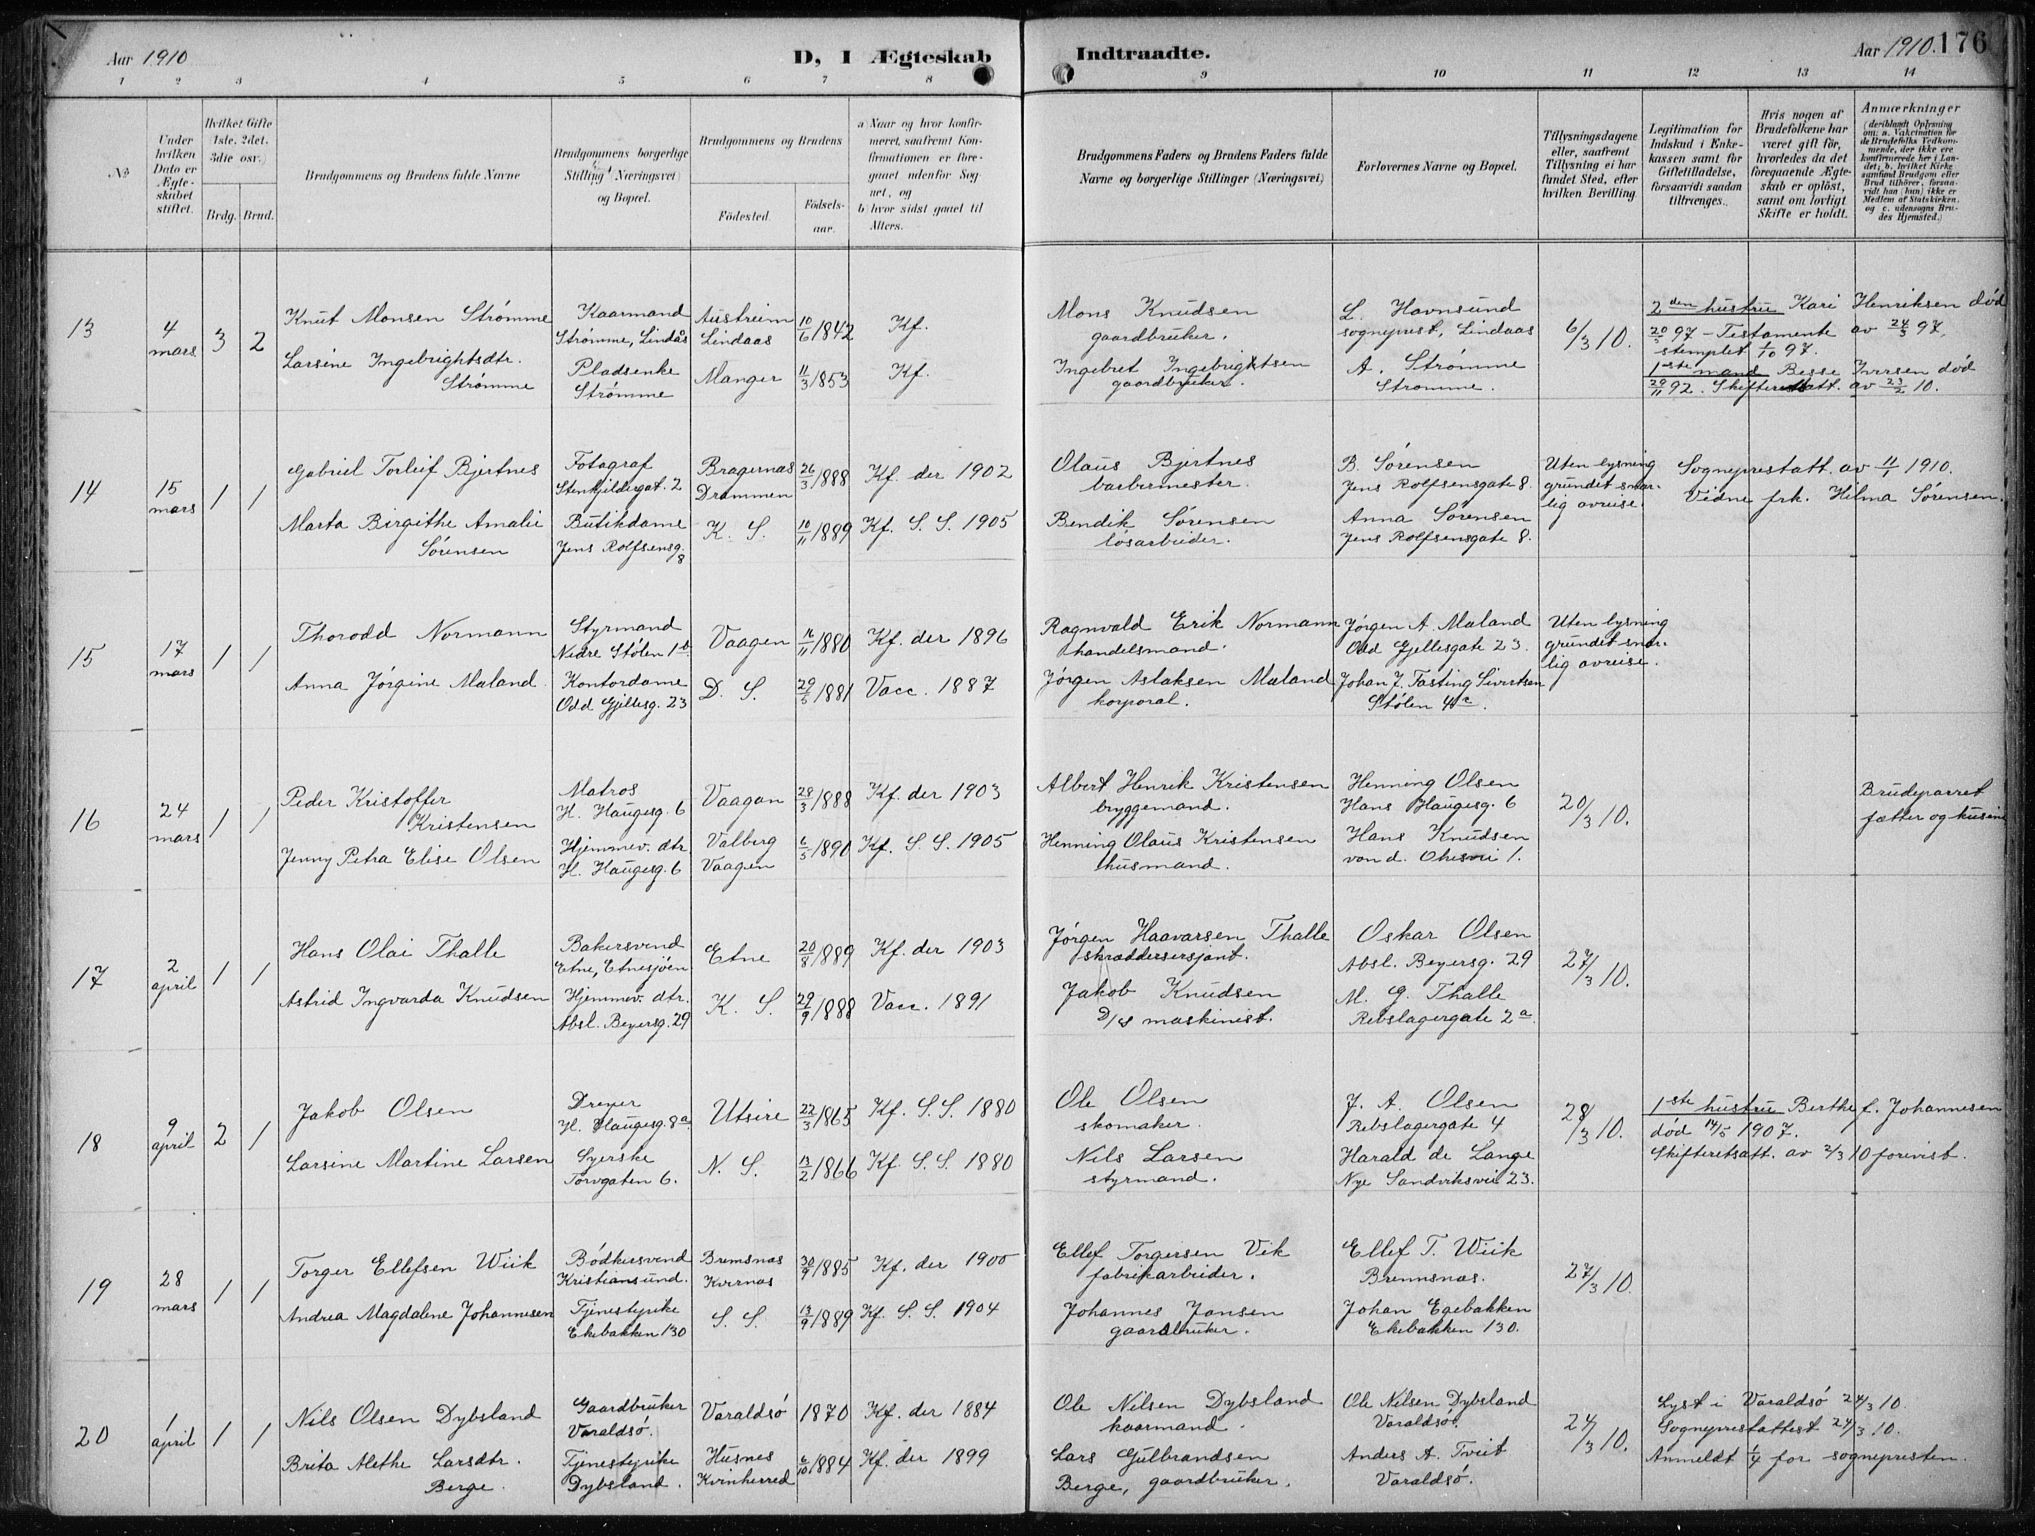 Aar 1910
D, I Ægteskab
Indtraadte.
Aar 1910. 176
1 2 3 4 5 6 7 8 9 10 11 12 13 14
No
Under hvilken Dato er Ægteskabet stiftet.
Hvilket Gifte (1ste, 2det, 3die osv.)
Brdg. Brud.
Brudgommens og Brudens fulde Navne
Brudgommens borgerlige Stilling (Næringsvei) og Bopæl.
Brudgommens og Brudens
Födested.
Födselsaar.
a) Naar og hvor konfirmeret, saafremt Konfirmationen er foregaaet udenfor Sognet, og
b) hvor sidst gaaet til Alters.
Brudgommens Faders og Brudens Faders fulde Navne og borgerlige Stillinger (Næringsvei)
Forlovernes Navne og Bopæl.
Tillysningsdagene eller, saafremt Tillysning ei har fundet Sted, efter hvilken Bevilling.
Legitimation for Indskud i Enkekassen samt for Giftetilladelse, forsaavidt saadan tiltrænges.
Hvis nogen af Brudefolkene har været gift før, hvorledes da det foregaaende Ægteskab er oplöst, samt om lovligt Skifte er holdt.
Anmærkninger
(deriblandt Oplysning om: a. Vakcination for de Brudefolks Vedkommende, der ikke ere konfirmerede her i Landet; b. hvilket Kirkesamfund Brudgom eller Brud tilhörer, forsaavidt han (hun) ikke er Medlem af Statskirken, og c. udensogns Brudes Hjemsted.)
13
4 mars
3 2
Knut Monsen Strømme
Kaarmand
Strømme, Lindås
Austreim
Lindaas
10/6 1842
Kf.
Mons Knudsen
gaardbruker.
L. Havnsund
sogneprest, Lindaas
6/3 10.
2den hustru Kari Henriksen død
20/3 97 - Testamente av 24/3 97,
stemplet 1/10 97.
Larsine Ingebrightsdtr.
Strømme
Pladsenke
Strømme
Manger
11/3 1853
Kf.
Ingebret Ingebrigtsen
gaardbruker.
A. Strømme
Strømme.
1ste mand Besse Iversen død
29/11 92. Skifterettatt. av 23/2 10.
14
15 mars
1 1
Gabriel Torleif Bjertnes
Fotograf
Stenkjeldergat. 2
Bragernas
Drammen
26/3 1888
Kf. der 1902
Olaus Bjertnes
barbermester.
B. Sørensen
Jens Rolfsensgate 8.
Uten lysning
grundet snar-
lig avreise.
Sogneprestatt. av 11/1 1910.
Vidne frk. Hilma Sørensen.
Marta Birgithe Amalie
Sørensen
Butikdame
Jens Rolfsensg. 8
K. S.
10/11 1889
Kf. S. S. 1905
Bendik Sørensen
løsarbeider.
Anna Sørensen
Jens Rolfsensgate 8.
15
17 mars
1 1
Thorodd Normann
Styrmand
Nedre Stølen 1b.
Vaagen
16/11 1880
Kf. der 1896
Ragnvald Erik Normann
handelsmand.
Jørgen A. Maland
Odd Gjellesgate 23.
Uten lysning
grundet snar-
lig avreise.
Anna Jørgine Maland
Kontordame
Odd Gjellesg. 23
D. S.
29/5 1881
Vacc. 1887
Jørgen Aslaksen Maland
korporal.
Johan J. Tasting Sivertsen
Stølen 4c.
16
24 mars
1 1
Peder Kristoffer
Kristensen
Matros
H. Haugesg. 6
Vaagan
28/3 1888
Kf. der 1903
Albert Henrik Kristensen
bryggemand.
Henning Olsen
Hans Haugesg. 6
20/3 10.
Brudeparret
fætter og kusine
Jenny Petra Elise Olsen
Hjemmev. dtr
H. Haugesg. 6
Valberg
Vaagen
6/5 1890
Kf. S. S. 1905
Henning Olaus Kristensen
husmand.
Hans Knudsen
von d. Ohesvei 1.
17
2 april
1 1
Hans Olai Thalle
Bakersvend
Etne, Etnesjøen
Etne
20/8 1889
Kf. der 1903
Jørgen Haavarsen Thalle
skræddersersjant.
Oskar Olsen
Absl. Beyersg. 29
27/3 10.
Astrid Ingvarda Knudsen
Hjemmev. dtr.
Absl. Beyersg. 29
K. S.
29/9 1888
Vacc. 1891
Jakob Knudsen
D/S maskinist.
M. G. Thalle
Rebslagergate 2a
18
9 april
2 1
Jakob Olsen
Dreier
H. Haugesg. 8a
Utsire
22/3 1865
Kf. S. S. 1880
Ole Olsen
skomaker.
J. A. Olsen
Rebslagergate 4
28/3 10.
1ste hustru Berthe f. Johannesen
død 14/5 1907.
Skifteretsatt. av 2/3 10 forevist.
Larsine Martine Larsen
Syerske
Torvgaten 6.
N. S.
13/2 1866
Kf. S. S. 1880
Nils Larsen
styrmand.
Harald de Lange
Nye Sandviksvei 23.
19
28 mars
1 1
Torger Ellefsen Wiik
Bødkersvend
Kristiansund.
Bremsnas
Kvernas
30/9 1885
Kf. der 1900
Ellef Torgersen Vik
fabrikarbeider.
Ellef T. Wiik
Bremsnas.
27/3 10.
Andrea Magdalene Johannesen
Tjenestepike
Ekebakken 130
S. S.
13/9 1889
Kf. S. S. 1904
Johannes Jansen
gaardbruker.
Johan Egebakken
Ekebakken 130.
20
1 april
1 1
Nils Olsen Dybsland
Gaardbruker
Varaldsø.
Varaldsø
1870
Kf. der 1884
Ole Nilsen Dybsland
kaarmand.
Ole Nilsen Dybsland
Varaldsø.
24/3 10.
Lyst i Varaldsø 24/3 10.
Sogneprestattest 24/3 10.
Anmeldt 1/4 for sognepresten.
Brita Alethe Larsdtr.
Berge.
Tjenestepike
Dybsland.
Husnes
Kvinherred
6/10 1884
Kf. der 1899
Lars Gulbrandsen
Berge, gaardbruker.
Anders A. Tveit
Varaldsø.